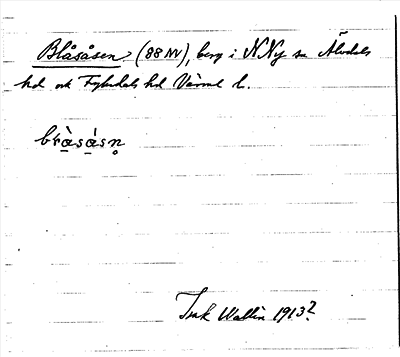 Blåsåsen (88 NV), berg i N Ny sn Älvdals
hd och Fryksdals hd Värml l.
bràsásn̥
Insk Wallin 1913?